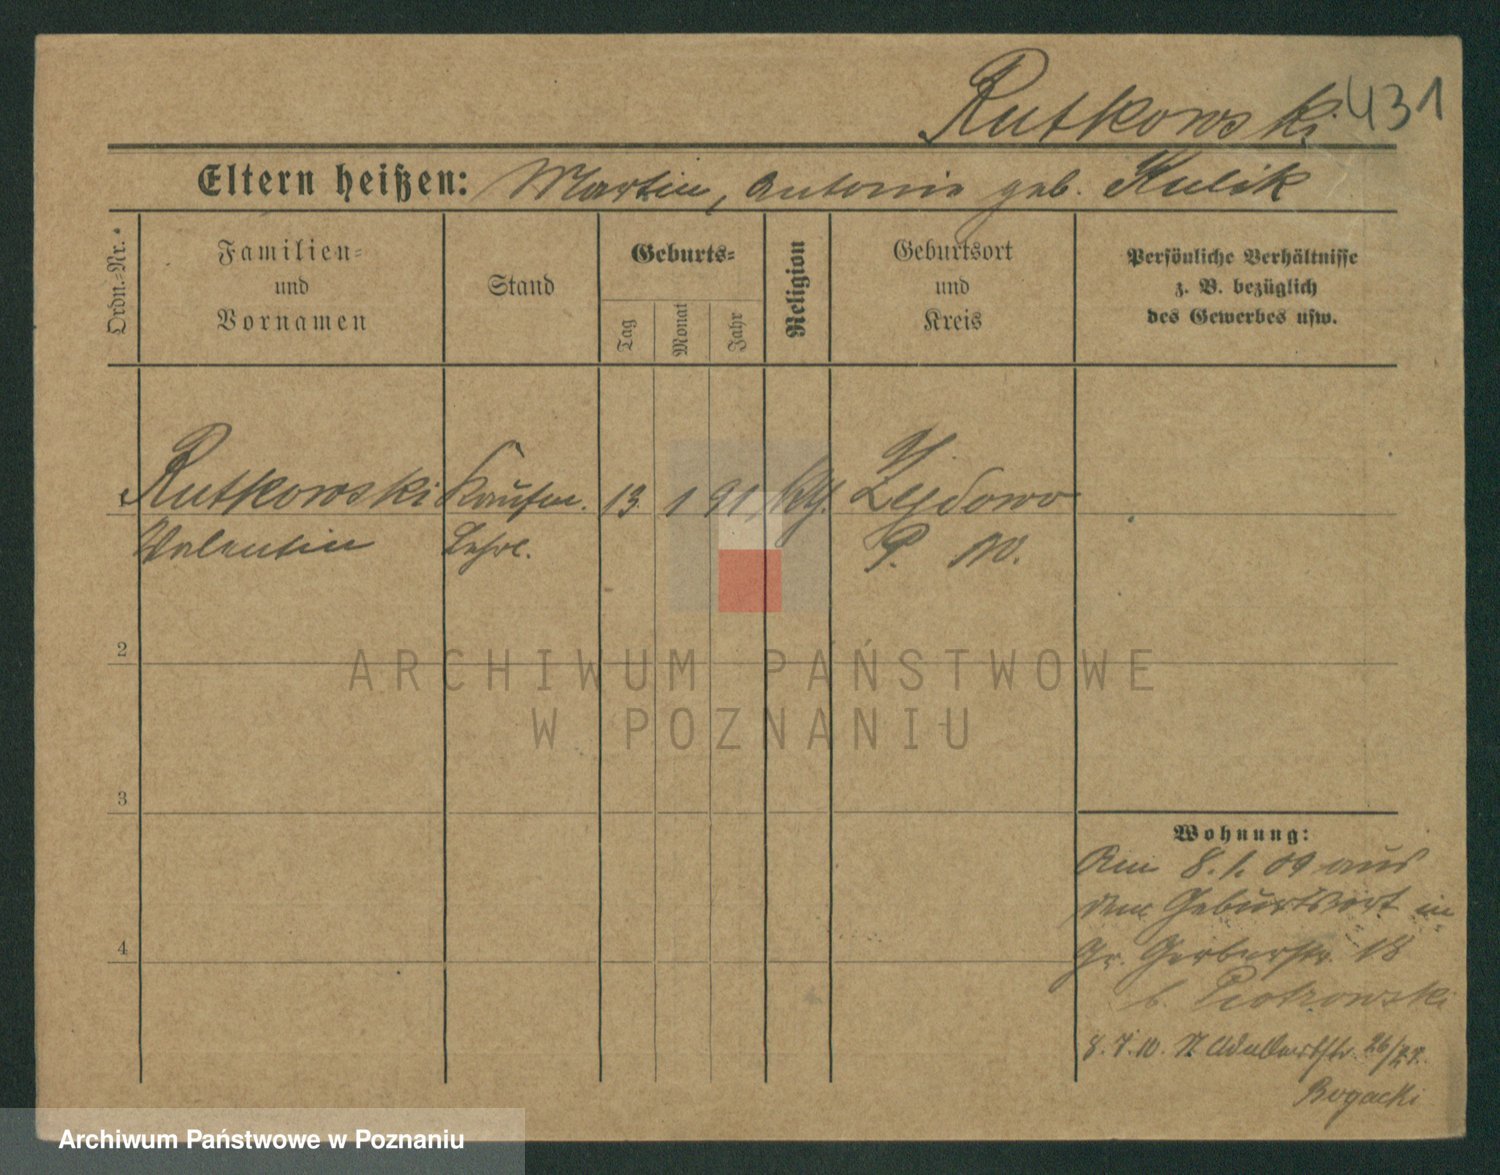 Rutkowski 431
Eltern heißen: Martin, Antonie geb. Kulik
Ordn.-Nr.
Familien-
und
Vornamen
Stand
Geburts-
Tag
Monat
Jahr
Religion
Geburtsort
und
Kreis
Persönliche Verhältnisse
z. B. bezüglich
des Gewerbes usw.
1 Rutkowski Kaufm. 13 1 91 kth. Zydowo
Valentin Lehrl. P. W.
2
ARCHIWUM PAŃSTWOWE
W POZNANIU
3
Wohnung:
Am 8.1.09 aus
dem Geburtsort in
Gr. Gerberstr. 18
b. Piotrowski
4
8.7.10. N. Adalbertstr. 26/27.
Bogacki
Archiwum Państwowe w Poznaniu